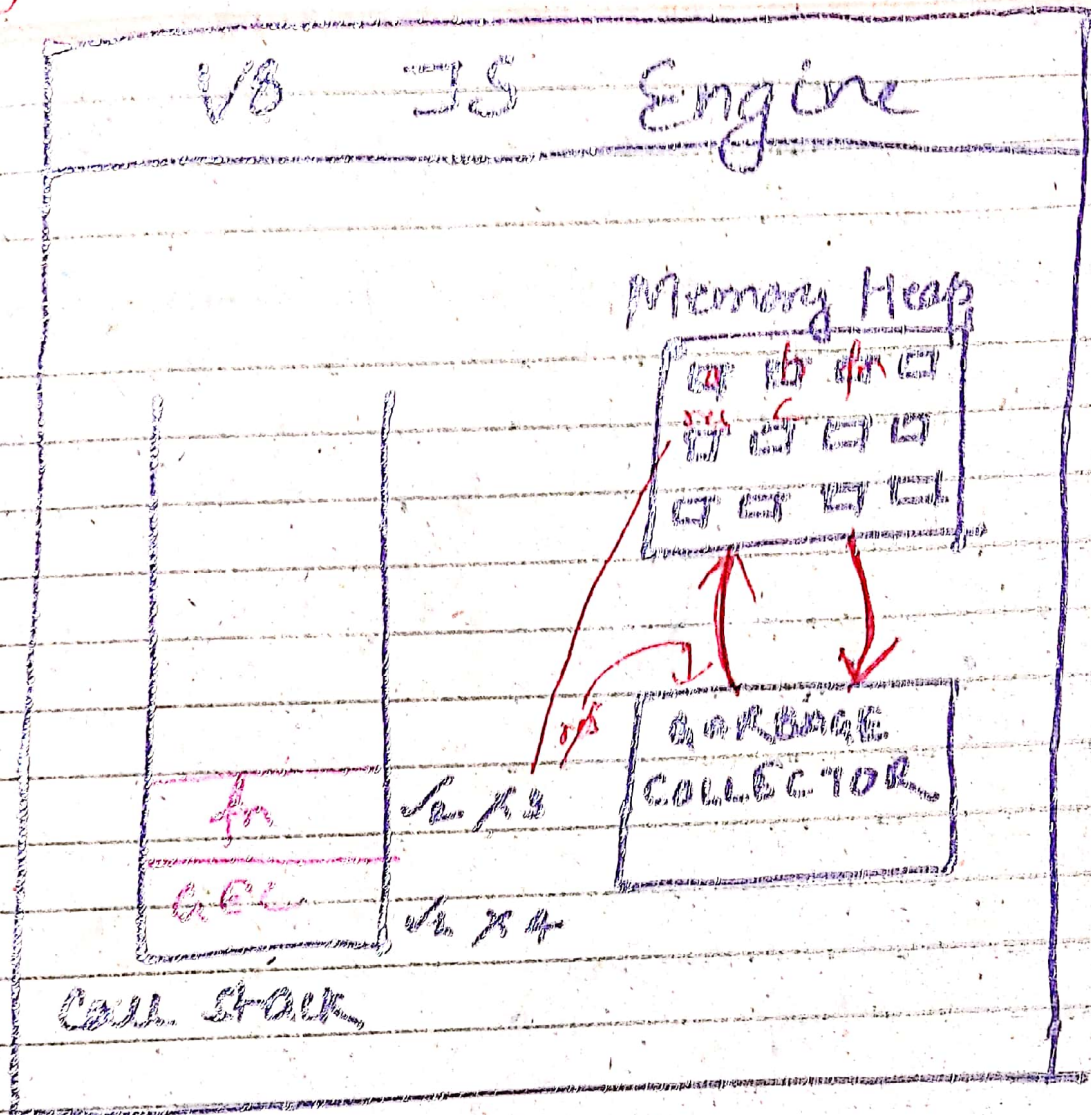 V8 JS Engine
Memory Heap
a b fn
res c
res
GARBAGE
COLLECTOR
fn
GEC
Call Stack